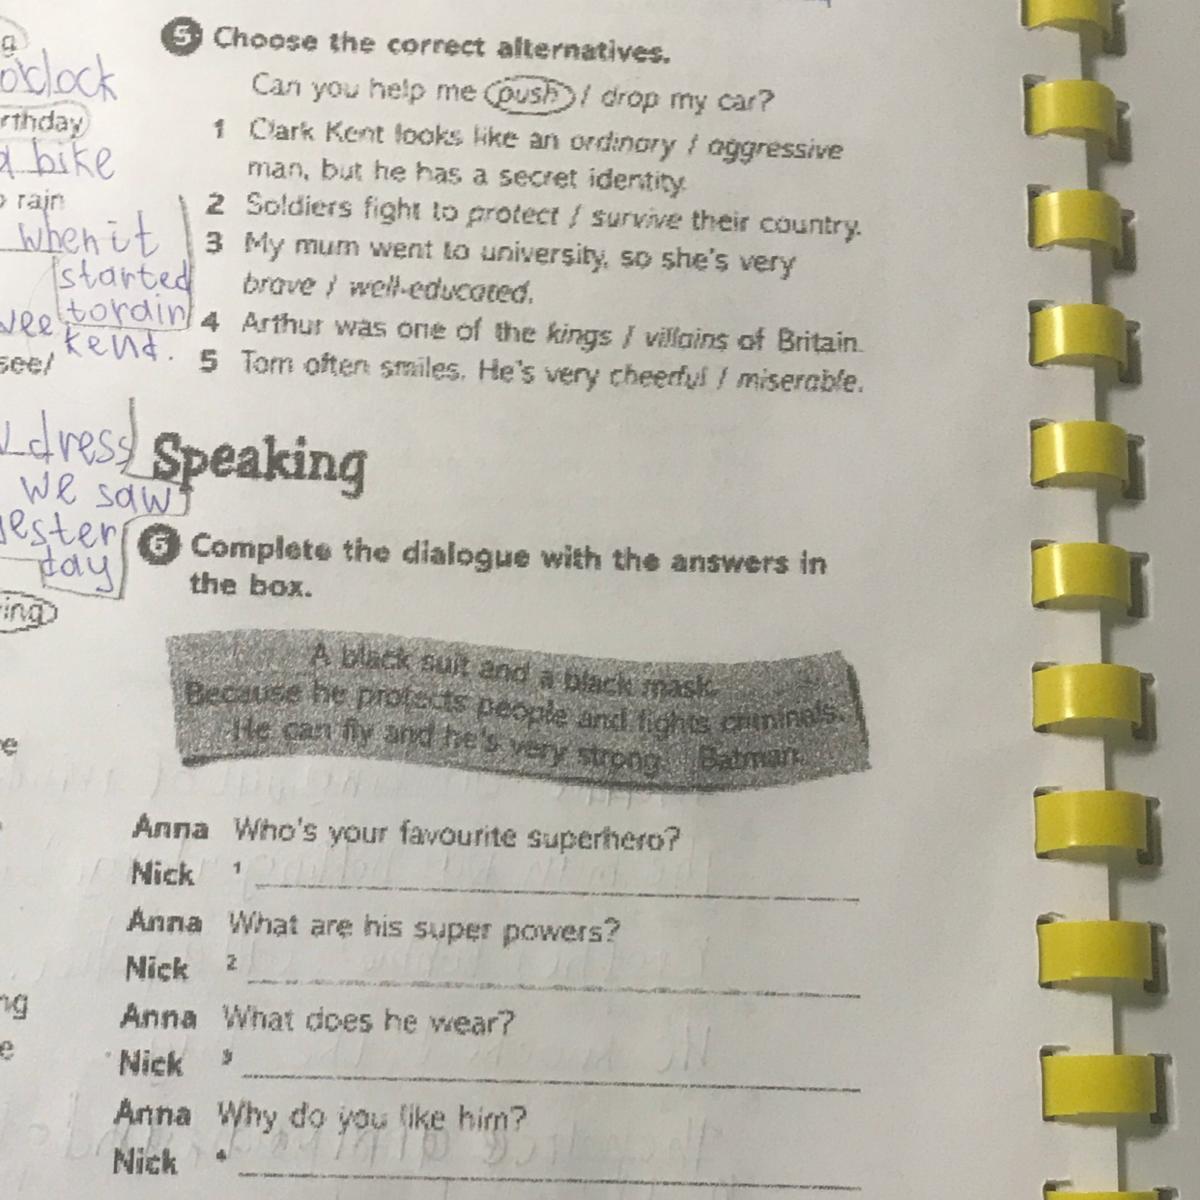 o'clock
rthday
a bike
rain
when it
started
to rain
wee
kend.
see/
dress
we saw
yester
day
ing
e
ng
e
5 Choose the correct alternatives.
Can you help me push / drop my car?
1 Clark Kent looks like an ordinary / aggressive
man, but he has a secret identity.
2 Soldiers fight to protect / survive their country.
3 My mum went to university, so she's very
brave / well-educated.
4 Arthur was one of the kings / villains of Britain.
5 Tom often smiles. He's very cheerful / miserable.
Speaking
6 Complete the dialogue with the answers in
the box.
A black suit and a black mask.
Because he protects people and fights criminals.
He can fly and he's very strong. Batman.
Anna Who's your favourite superhero?
Nick 1
Anna What are his super powers?
Nick 2
Anna What does he wear?
Nick 3
Anna Why do you like him?
Nick 4